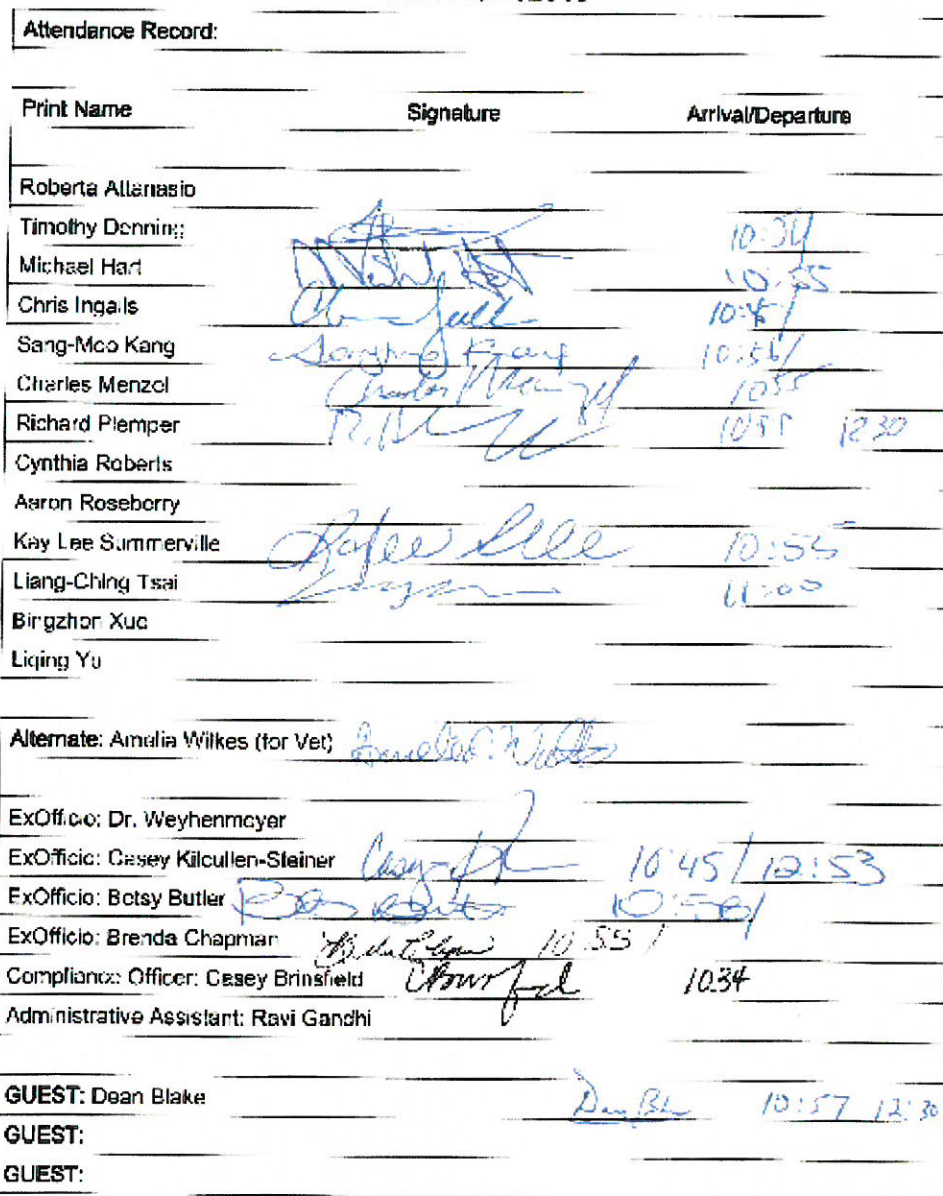 Attendance Record:
Print Name Signature Arrival/Departure
Roberta Attanasio
Timothy Denning
Michael Hart 10:55
Chris Ingalls
Sang-Moo Kang Sangmoo Kang 10:56/
Charles Menzel Charles Menzel 1055
Richard Plemper 1055 1230
Cynthia Roberts
Aaron Roseberry
Kay Lee Summerville 10:55
Liang-Ching Tsai 11:00
Bingzhon Xue
Liqing Yu
Alternate: Amelia Wilkes (for Vet)
ExOfficio: Dr. Weyhenmeyer
ExOfficio: Casey Kilcullen-Steiner 10:45 / 12:53
ExOfficio: Betsy Butler
ExOfficio: Brenda Chapman 10:55 /
Compliance Officer: Casey Brinsfield 1034
Administrative Assistant: Ravi Gandhi
GUEST: Dean Blake 10:57 12:30
GUEST:
GUEST: